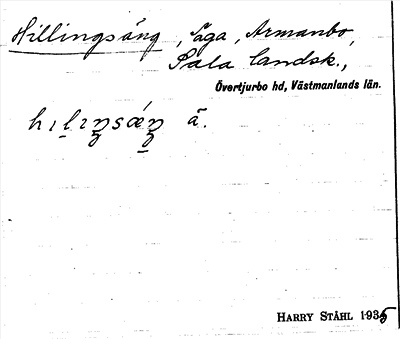 Hillingsäng, säga, Armanbo,
Sala landsk.,
Övertjurbo hd, Västmanlands län.
hɩḷɩŋsǽŋ ā.
HARRY STÅHL 1935